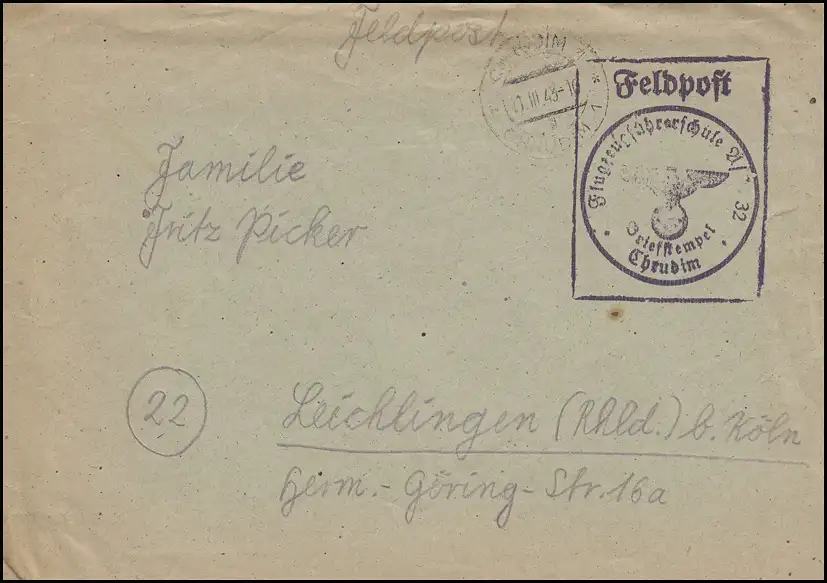 Feldpost
CHRUDIM
. III. 43-16
CHRUDIM
Feldpost
Flugzeugführerschule A/ 32
Briefstempel
Chrudim
Familie
Fritz Picker
22
Leichlingen (Rhld.) b. Köln
Herm.-Göring-Str. 16a